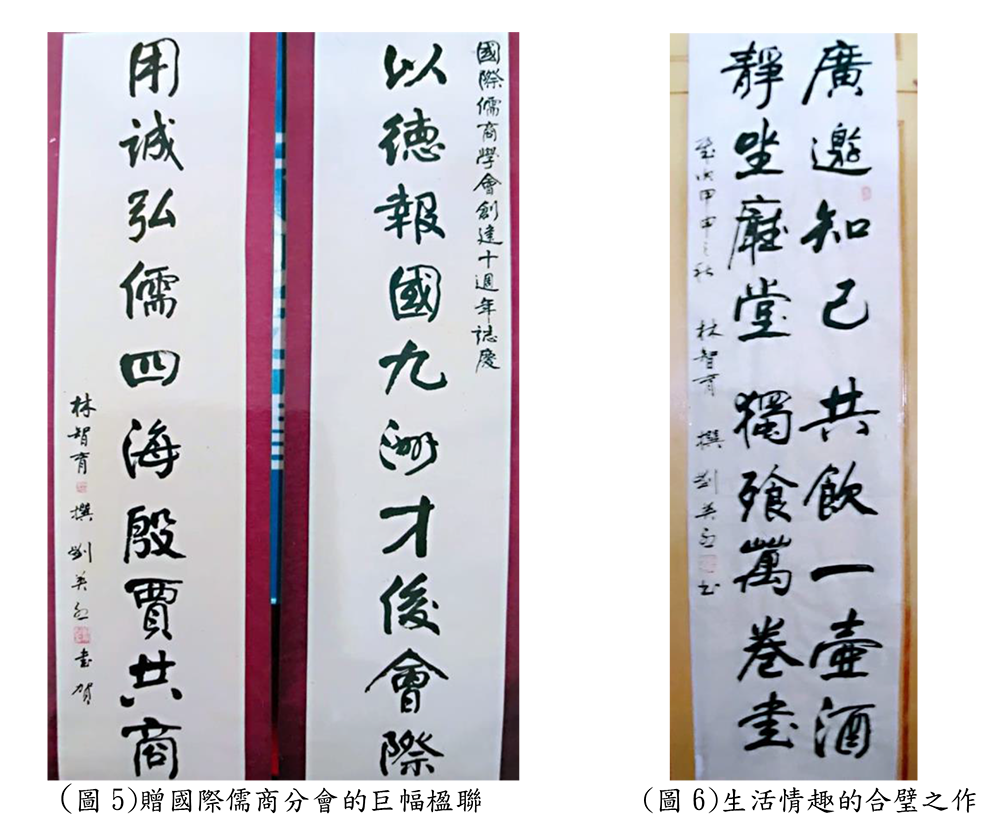 國際儒商學會創建十週年誌慶
以德報國九洲才俊會際
用誠弘儒四海殷賈共商
林智育 撰 劉英 書賀
(圖 5)贈國際儒商分會的巨幅楹聯
廣邀知己共飲一壺酒
靜坐廳堂獨飱萬卷書
歲次甲申之秋 林智育 撰 劉英 書
(圖 6)生活情趣的合璧之作